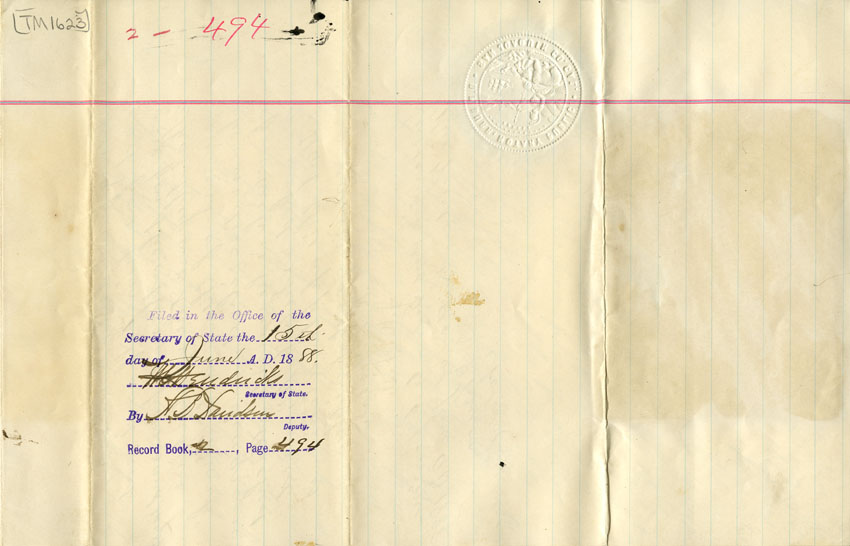 [TM1623]
2 - 494
Filed in the Office of the
Secretary of State the 15th
day of June A.D. 1888.
Hendricks
Secretary of State.
By Davidson
Deputy.
Record Book, 2, Page 494